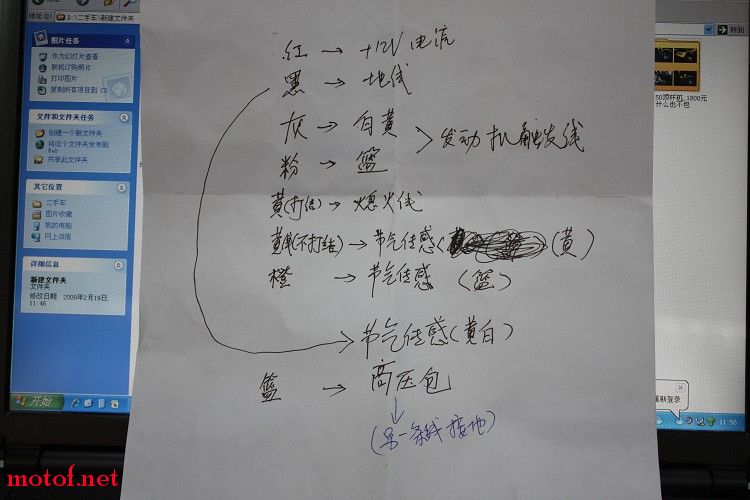 地址(D) D:\二手车\新建文件夹
转到
图片任务
作为幻灯片查看
联机订购照片
打印图片
复制所有项目到 CD
文件和文件夹任务
创建一个新文件夹
将这个文件夹发布到
Web
共享此文件夹
其它位置
二手车
图片收藏
我的电脑
网上邻居
详细信息
新建文件夹
文件夹
修改日期: 2009年2月19日,
11:46
开始
50顶杆机 1800元
什么也不包
重新登录
11:56
红 → +12V 电流
黑 → 地线
灰 → 白黄
粉 → 篮
> 发动机触发线
黄(打结) → 熄火线
黄(不打结) → 节气传感( (黄)
橙 → 节气传感 (篮)
→ 节气传感(黄白)
篮 → 高压包
↓
(另一条线接地)
motof.net